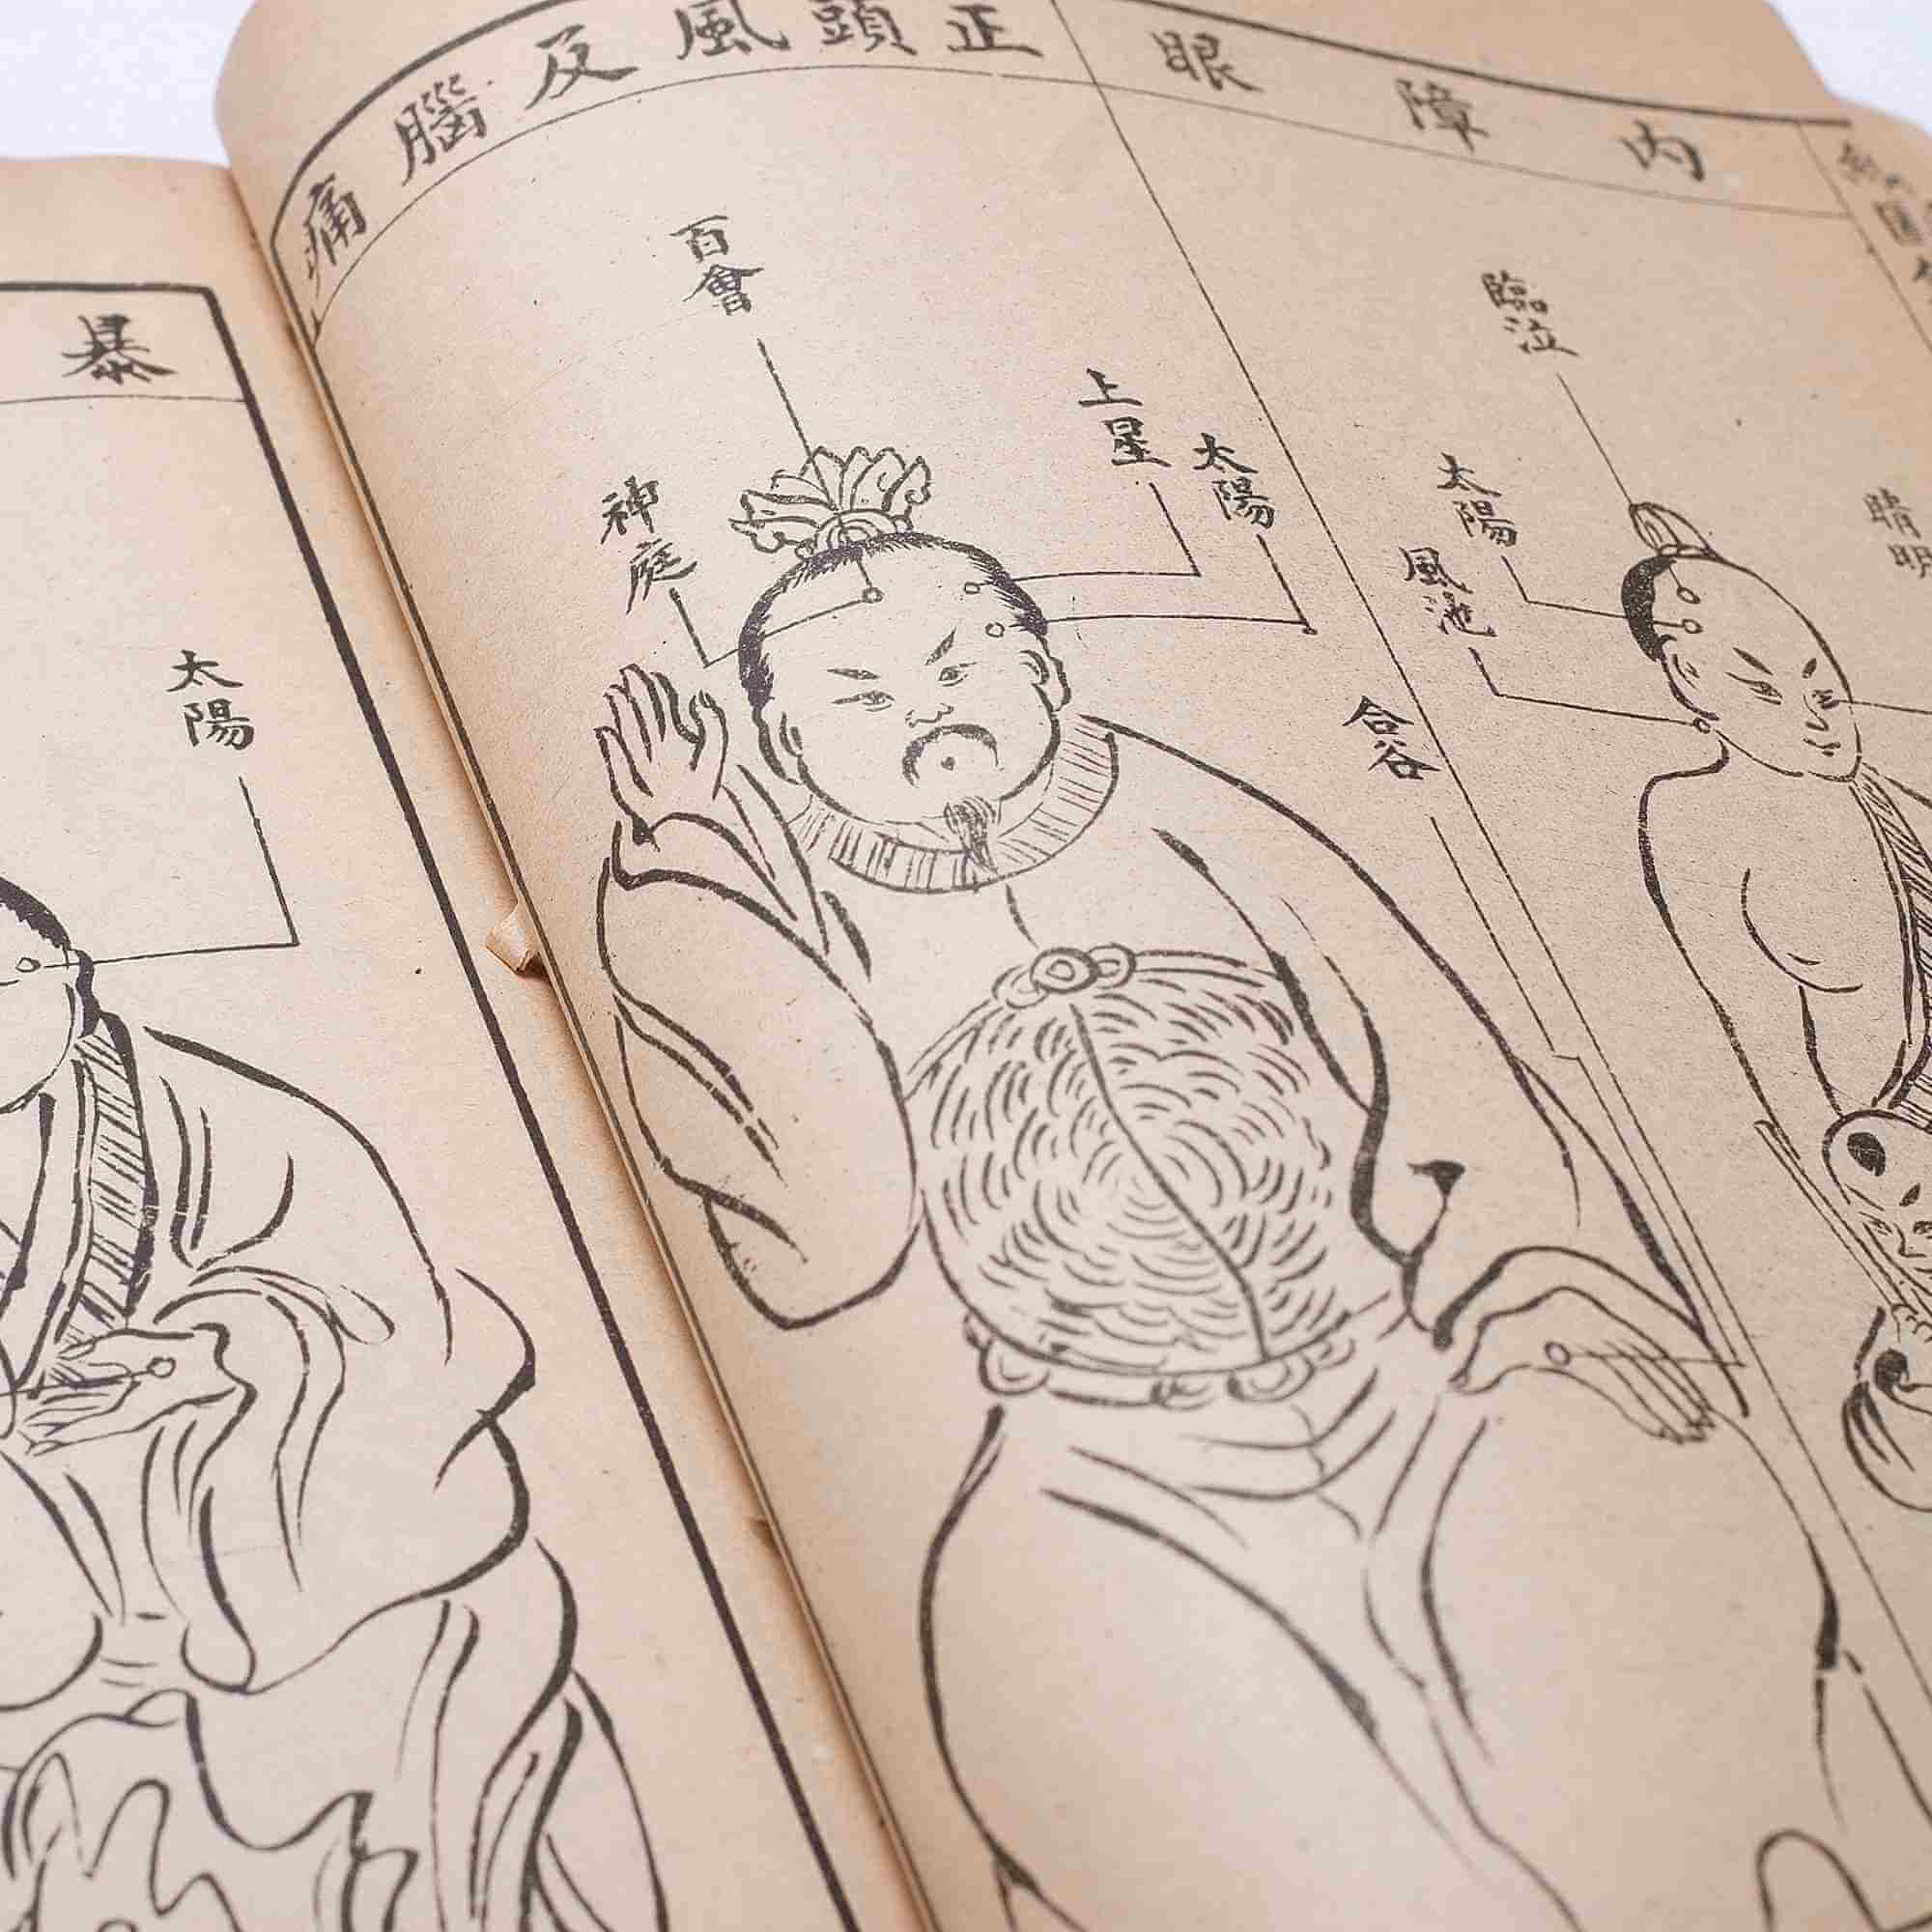 內障眼
臨泣
睛明
太陽
風池
正頭風及腦痛
百會
上星
太陽
神庭
合谷
暴
太陽